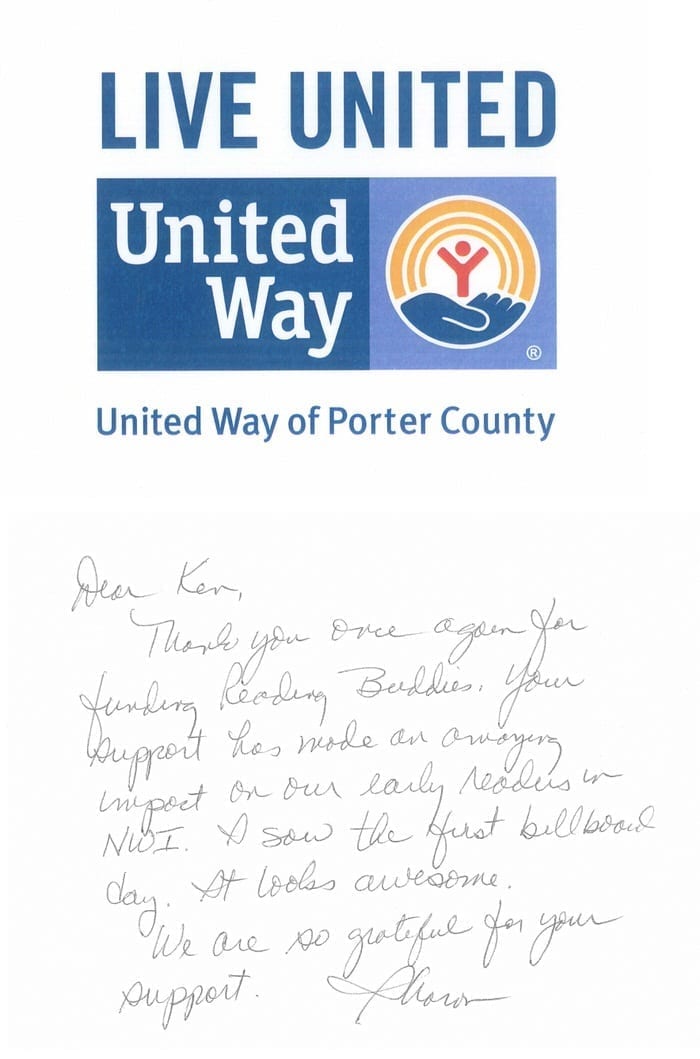 LIVE UNITED
United
Way
®
United Way of Porter County
Dear Ken,
Thank you once again for
funding Reading Buddies. Your
support has made an amazing
impact on our early readers in
NWI. I saw the first billboard
day. It looks awesome.
We are so grateful for your
support. Sharon